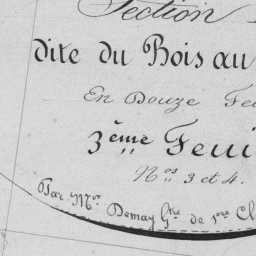 Section
dite du Bois au
En Douze Feu
3ème Feui
Nos 3 et 4.
Par Mr. Demay Gtre de 1ere Cl